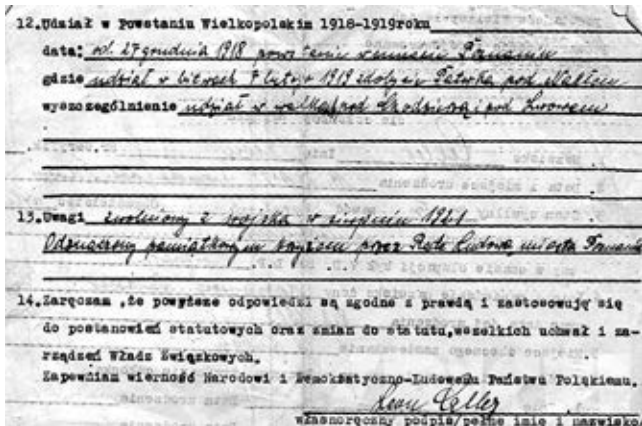 12. Udział w Powstaniu Wielkopolskim 1918-1919roku
data: od 27 grudnia 1918 powstanie w mieście Poznaniu
gdzie udział w bitwach 7 luty 1919 pod Nakłem
wyszczególnienie udział w walkach pod i pod Lwowem
13. Uwagi zwolniony z wojska w sierpniu 1921
Odznaczony pamiątkowym krzyżem przez Radę Ludową miasta Poznania
14. Zaręczam ,że powyższe odpowiedzi są zgodne z prawdą i zastosowuję się
do postanowień statutowych oraz zmian do statutu,wszelkich uchwał i za-
rządzeń Władz Związkowych.
Zapewniam wierność Narodowi i Demokratyczno-Ludowemu Państwu Polskiemu.
Leon Celler
własnoręczny podpis/pełne imię i nazwisko